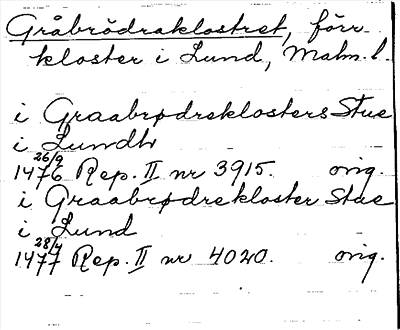 Gråbrödraklostret, förr.
kloster i Lund, Malm. l.
i Graabrødreklosters Stue
i Lundh
1476 26/9 Rep. II nr 3915. orig.
i Graabrødrekloster Stue
i Lund
1477 28/4 Rep. II nr 4020. orig.